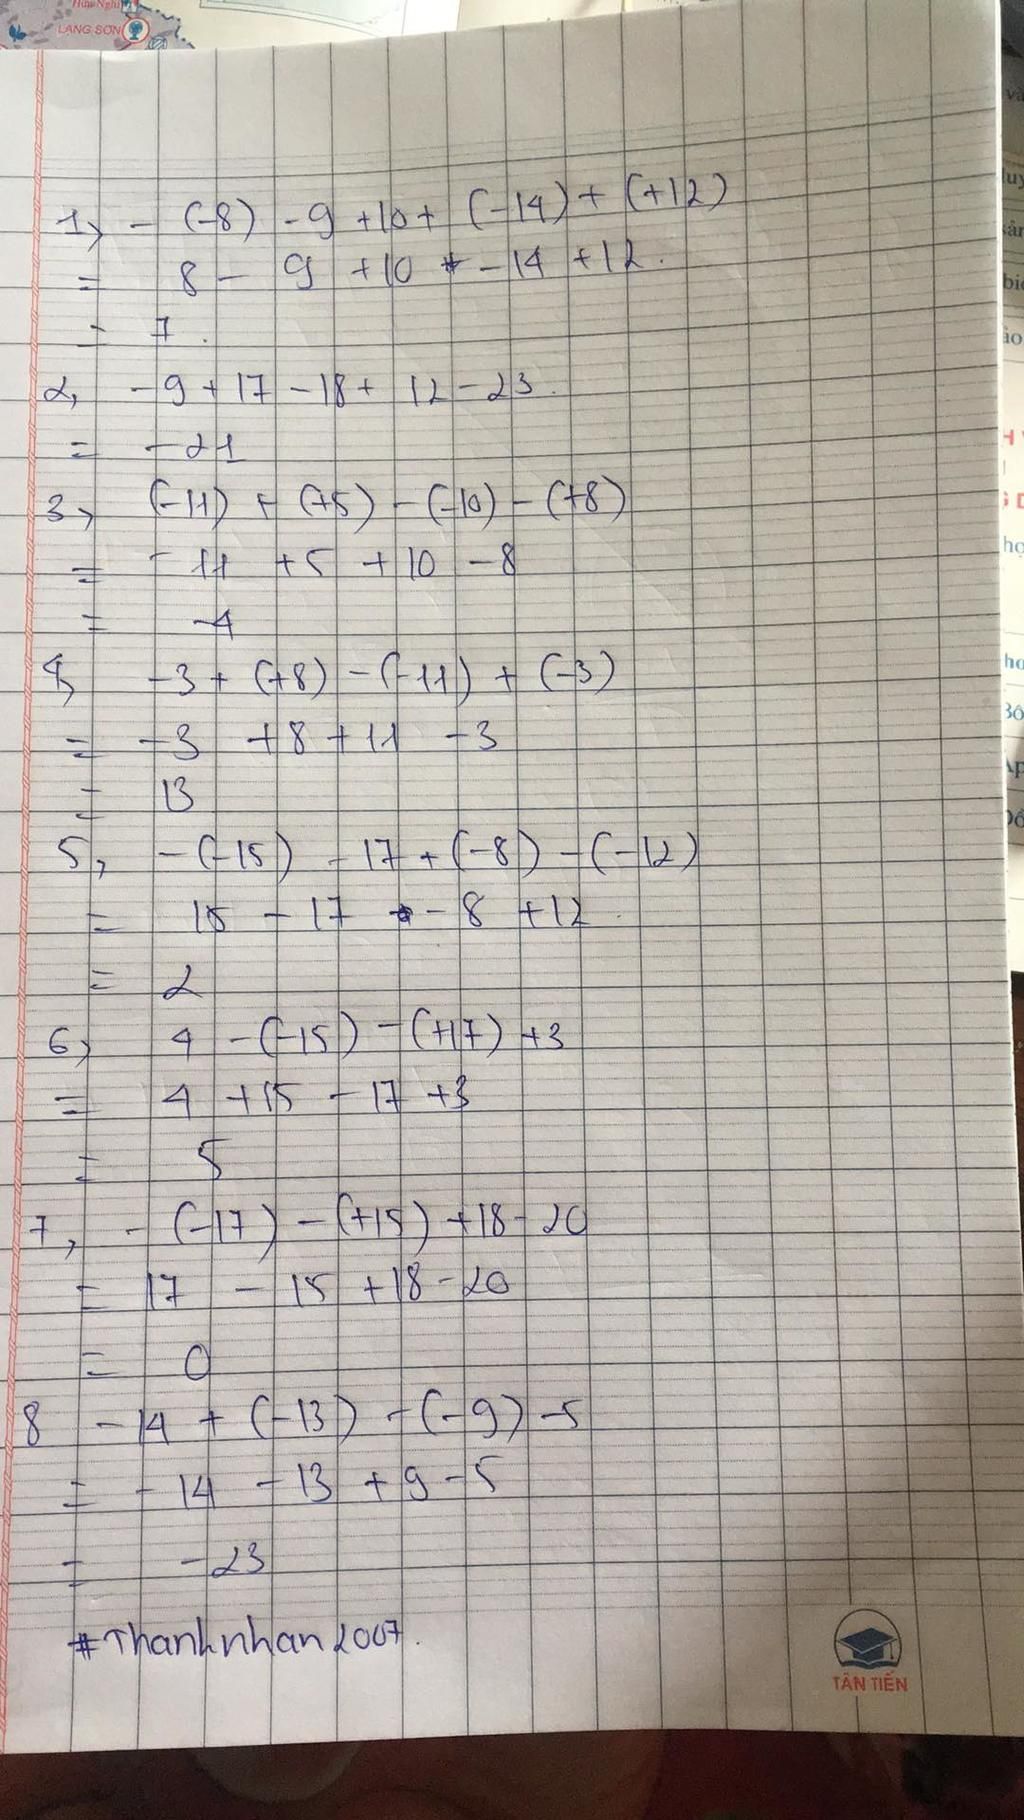 Hữu Nghị
LẠNG SƠN
1, - (-8) -9 +10 + (-14) + (+12)
= 8 - 9 +10 - 14 +12.
= 7.
2, -9 + 17 - 18 + 12 - 23.
= -21
3, (-11) + (+5) - (-10) - (+8)
= -11 +5 +10 -8
= -4
4, -3 + (+8) - (-11) + (-3)
= -3 +8 +11 -3
= 13
5, -(-15) - 17 + (-8) - (-12)
= 15 - 17 - 8 +12.
= 2
6, 4 -(-15) - (+17) +3
= 4 +15 - 17 +3
= 5
7, - (-17) - (+15) +18 - 20
= 17 - 15 +18 - 20
= 0
8 -14 + (-13) - (-9) -5
= -14 - 13 + 9 - 5
= -23
#Thanhnhan2007.
TÂN TIẾN